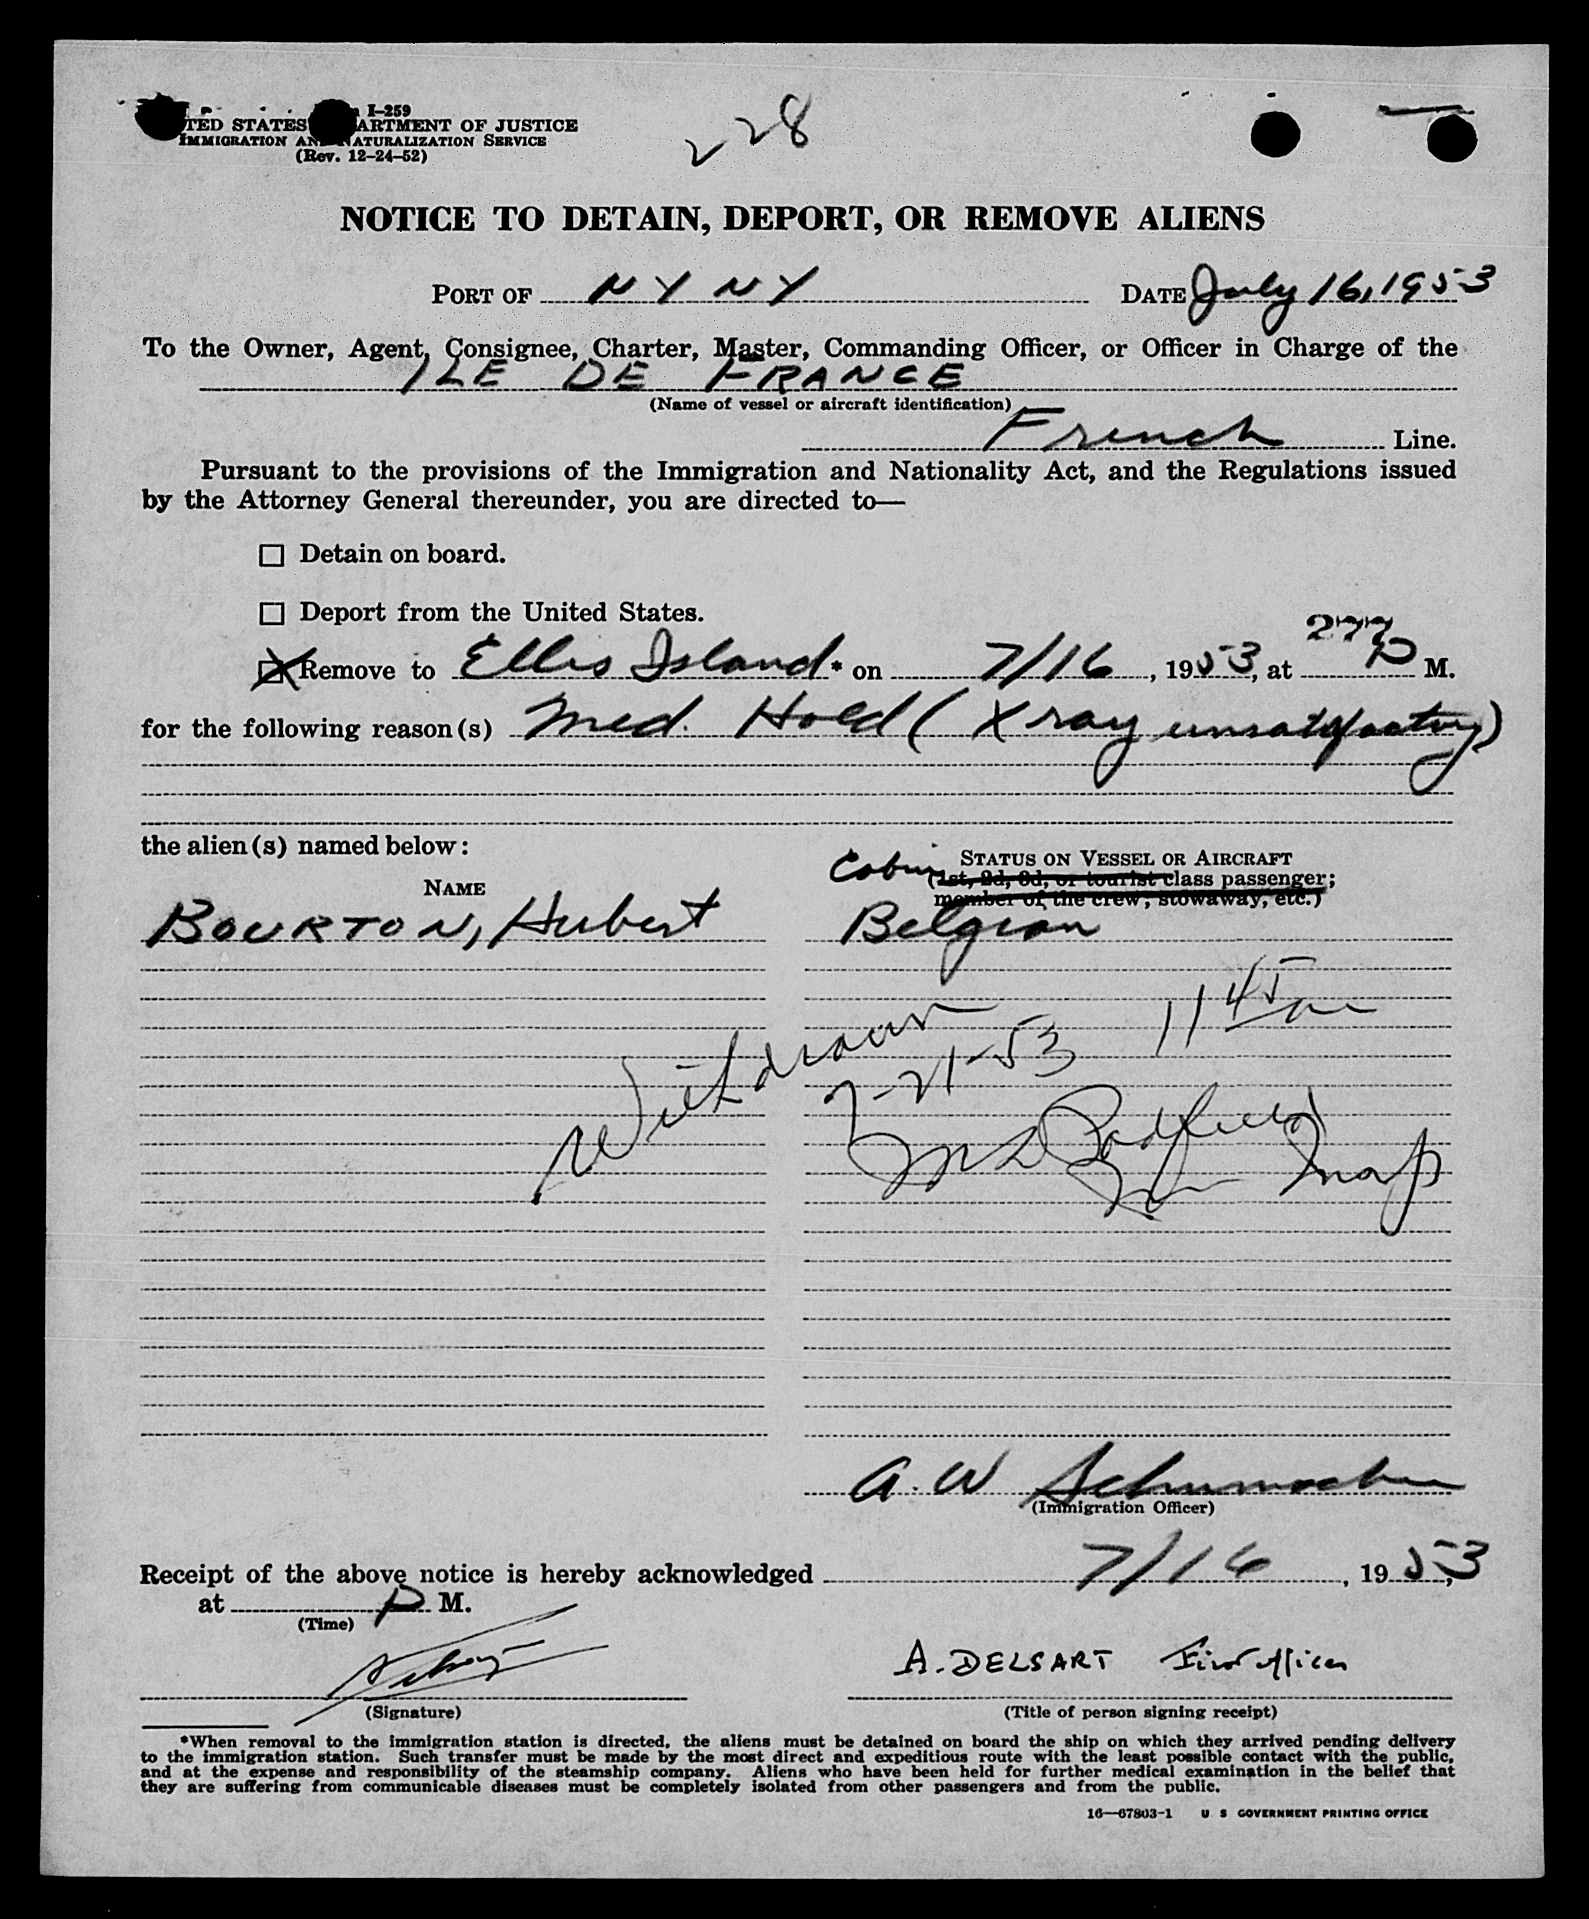 I-259
UNITED STATES DEPARTMENT OF JUSTICE
IMMIGRATION AND NATURALIZATION SERVICE
(Rev. 12-24-52)
228
NOTICE TO DETAIN, DEPORT, OR REMOVE ALIENS
PORT OF N Y N Y DATE July 16, 1953
To the Owner, Agent, Consignee, Charter, Master, Commanding Officer, or Officer in Charge of the
ILE DE FRANCE
(Name of vessel or aircraft identification)
French Line.
Pursuant to the provisions of the Immigration and Nationality Act, and the Regulations issued
by the Attorney General thereunder, you are directed to—
☐ Detain on board.
☐ Deport from the United States.
277
☒ Remove to Ellis Island* on 7/16, 1953, at P M.
for the following reason(s) Med. Hold (Xray unsatisfactory)
the alien(s) named below:
STATUS ON VESSEL OR AIRCRAFT
Cabin (1st, 2d, 3d, or tourist class passenger;
member of the crew, stowaway, etc.)
NAME
BOURTON, Hubert Belgian
Withdrawn 7-21-53 11 45 am
A. W Schumacher
(Immigration Officer)
Receipt of the above notice is hereby acknowledged 7/16, 1953,
at P M.
(Time)
A. DELSART First officer
(Signature) (Title of person signing receipt)
*When removal to the immigration station is directed, the aliens must be detained on board the ship on which they arrived pending delivery
to the immigration station. Such transfer must be made by the most direct and expeditious route with the least possible contact with the public,
and at the expense and responsibility of the steamship company. Aliens who have been held for further medical examination in the belief that
they are suffering from communicable diseases must be completely isolated from other passengers and from the public.
16—67803-1 U S GOVERNMENT PRINTING OFFICE